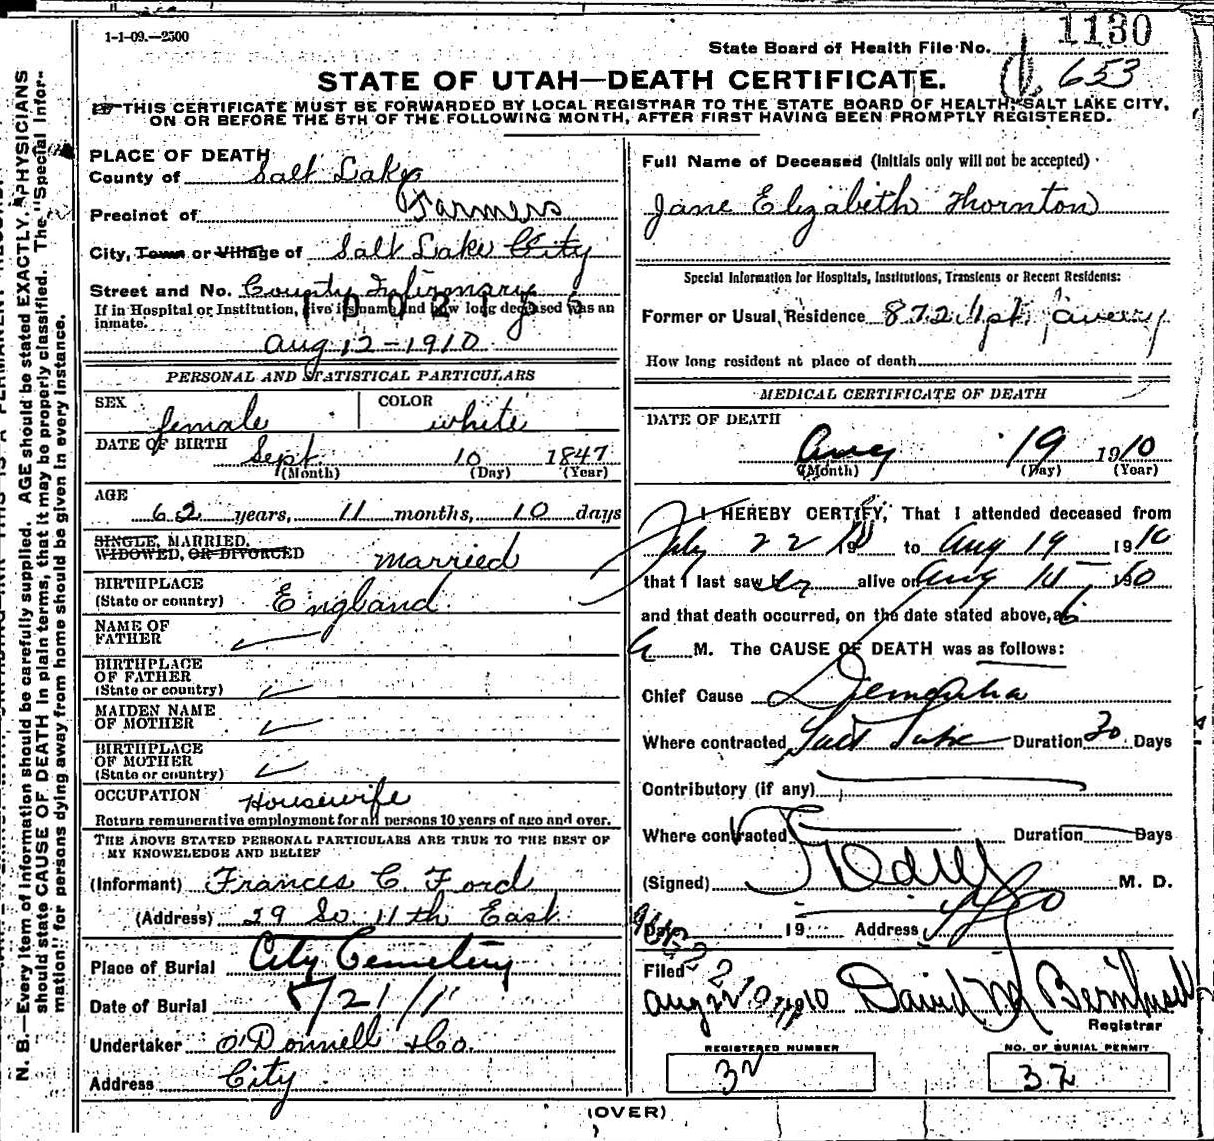 1-1-09.—2500
State Board of Health File No. 1130
653
STATE OF UTAH—DEATH CERTIFICATE.
THIS CERTIFICATE MUST BE FORWARDED BY LOCAL REGISTRAR TO THE STATE BOARD OF HEALTH, SALT LAKE CITY,
ON OR BEFORE THE 5TH OF THE FOLLOWING MONTH, AFTER FIRST HAVING BEEN PROMPTLY REGISTERED.
PLACE OF DEATH
County of Salt Lake
Precinct of Farmers
City, Town or Village of Salt Lake City
Street and No. County Infirmary
If in Hospital or Institution, give its name and how long deceased was an
inmate.
Aug 12-1910
PERSONAL AND STATISTICAL PARTICULARS
SEX female COLOR white
DATE OF BIRTH Sept 10 1847
(Month) (Day) (Year)
AGE
62 years, 11 months, 10 days
SINGLE, MARRIED,
WIDOWED, OR DIVORCED married
BIRTHPLACE
(State or country) England
NAME OF
FATHER
BIRTHPLACE
OF FATHER
(State or country)
MAIDEN NAME
OF MOTHER
BIRTHPLACE
OF MOTHER
(State or country)
OCCUPATION Housewife
Return remunerative employment for all persons 10 years of age and over.
THE ABOVE STATED PERSONAL PARTICULARS ARE TRUE TO THE BEST OF
MY KNOWLEDGE AND BELIEF
(Informant) Frances C Ford
(Address) 29 So 11th East
Place of Burial City Cemetery
Date of Burial 8/21/11
Undertaker O'Donnell & Co.
Address City
Full Name of Deceased (Initials only will not be accepted)
Jane Elizabeth Thornton
Special Information for Hospitals, Institutions, Transients or Recent Residents:
Former or Usual Residence 872
How long resident at place of death
MEDICAL CERTIFICATE OF DEATH
DATE OF DEATH
Aug 19 1910
(Month) (Day) (Year)
I HEREBY CERTIFY, That I attended deceased from
July 22 1910 to Aug 19 1910
that I last saw her alive on Aug 1910
and that death occurred, on the date stated above, at 6
a M. The CAUSE OF DEATH was as follows:
Chief Cause Dementia
Where contracted Salt Lake Duration 30 Days
Contributory (if any)
Where contracted Duration Days
(Signed) M. D.
Date 19 Address
Filed
Aug 22 1910 David M
Registrar
REGISTERED NUMBER
32
NO. OF BURIAL PERMIT
32
(OVER)
N. B.—Every item of information should be carefully supplied. AGE should be stated EXACTLY. PHYSICIANS
should state CAUSE OF DEATH in plain terms, that it may be properly classified. The "Special Infor-
mation" for persons dying away from home should be given in every instance.